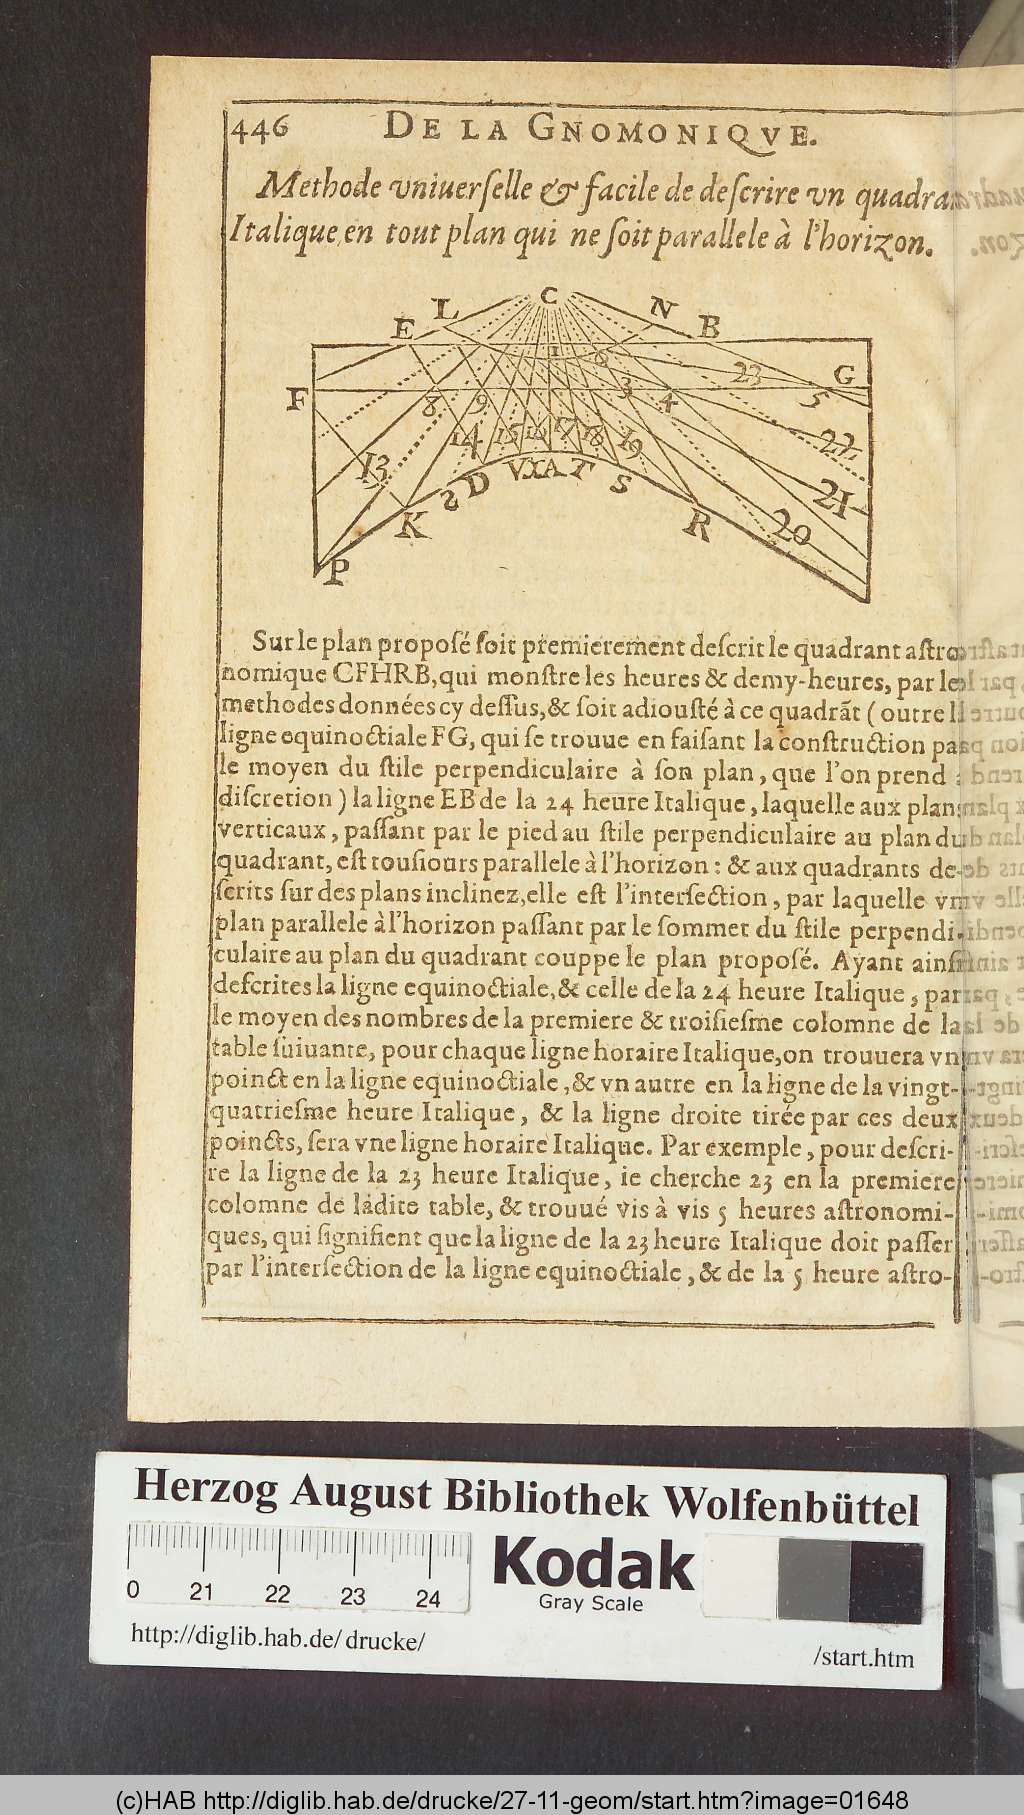 446 DE LA GNOMONIQVE.
Methode vniuerſelle & facile de deſcrire vn quadra
Italique, en tout plan qui ne ſoit parallele à l'horizon.
C
L N
E B
1 6
23 G
F 8 9 3 4 5
14 15 16 17 18 19 22
13 21
V X A T
2 D S
K R 20
P
Sur le plan propoſé ſoit premierement deſcrit le quadrant aſtro
nomique CFHRB, qui monſtre les heures & demy-heures, par le
methodes données cy deſſus, & ſoit adiouſté à ce quadrāt (outre l
ligne equinoctiale FG, qui ſe trouue en faiſant la conſtruction pa
le moyen du ſtile perpendiculaire à ſon plan, que l'on prend
diſcretion) la ligne EB de la 24 heure Italique, laquelle aux plan
verticaux, paſſant par le pied au ſtile perpendiculaire au plan du
quadrant, eſt touſiours parallele à l'horizon: & aux quadrants de-
ſcrits ſur des plans inclinez, elle eſt l'interſection, par laquelle vn
plan parallele à l'horizon paſſant par le ſommet du ſtile perpendi-
culaire au plan du quadrant couppe le plan propoſé. Ayant ainſi
deſcrites la ligne equinoctiale, & celle de la 24 heure Italique, par
le moyen des nombres de la premiere & troiſieſme colomne de la
table ſuiuante, pour chaque ligne horaire Italique, on trouuera vn
poinct en la ligne equinoctiale, & vn autre en la ligne de la vingt-
quatrieſme heure Italique, & la ligne droite tirée par ces deux
poincts, ſera vne ligne horaire Italique. Par exemple, pour deſcri-
re la ligne de la 23 heure Italique, ie cherche 23 en la premiere
colomne de ladite table, & trouué vis à vis 5 heures aſtronomi-
ques, qui ſignifient que la ligne de la 23 heure Italique doit paſſer
par l'interſection de la ligne equinoctiale, & de la 5 heure aſtro-
Herzog August Bibliothek Wolfenbüttel
0 21 22 23 24
Kodak
Gray Scale
http://diglib.hab.de/drucke/
/start.htm
(c)HAB http://diglib.hab.de/drucke/27-11-geom/start.htm?image=01648